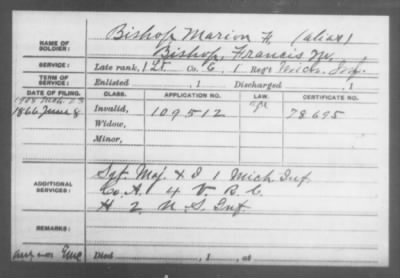 NAME OF SOLDIER:
Bishop Marion F. (alias)
Bishop, Francis M.
SERVICE:
Late rank, 1 Lt. Co. E, 1 Reg't Mich. Inf.
TERM OF SERVICE:
Enlisted , 1 Discharged , 1
DATE OF FILING. CLASS. APPLICATION NO. LAW. CERTIFICATE NO.
1866 June 8 Invalid, 109512 78695
Widow,
Minor,
ADDITIONAL SERVICES:
Sgt Maj. & I 1 Mich Inf
Co. A. 4 V. R. C.
H 2 U. S. Inf.
REMARKS:
Died , 1 , at